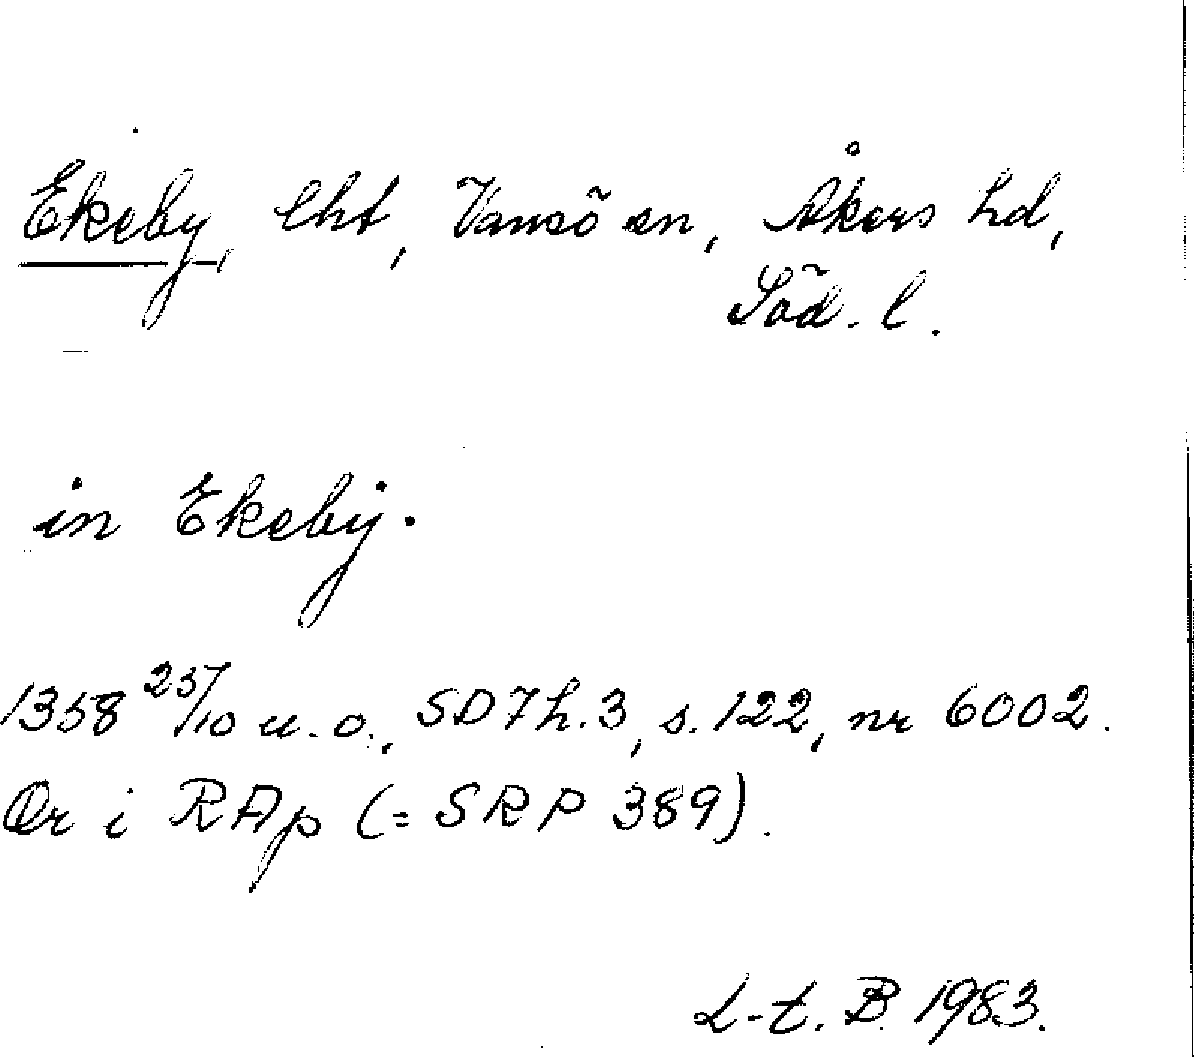 Ekeby, lht, Vansö sn, Åkers hd,
Söd. l.
in Ekebij.
1358 25/10 u. o., SD 7 h. 3, s. 122, nr 6002.
Or i RAp (= SRP 389).
L-t. B. 1983.